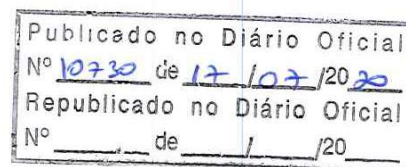 Publicado no Diário Oficial
Nº 10730 de 17/07/2020
Republicado no Diário Oficial
Nº ______ de ____/____/20____